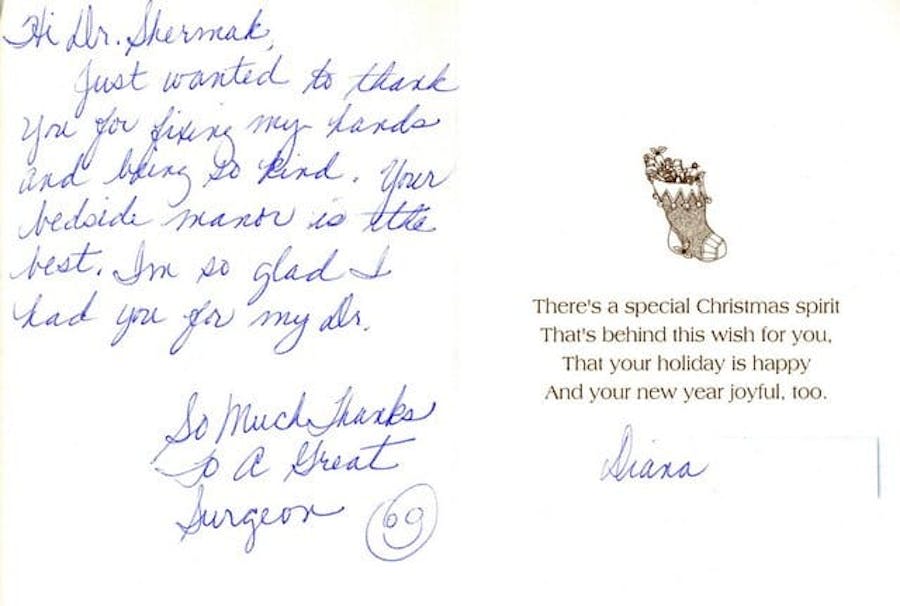 Hi Dr. Shermak,
Just wanted to thank
you for fixing my hands
and being so kind. Your
bedside manor is the
best. Im so glad I
had you for my Dr.
So Much Thanks
To A Great
Surgeon
There's a special Christmas spirit
That's behind this wish for you,
That your holiday is happy
And your new year joyful, too.
Diana